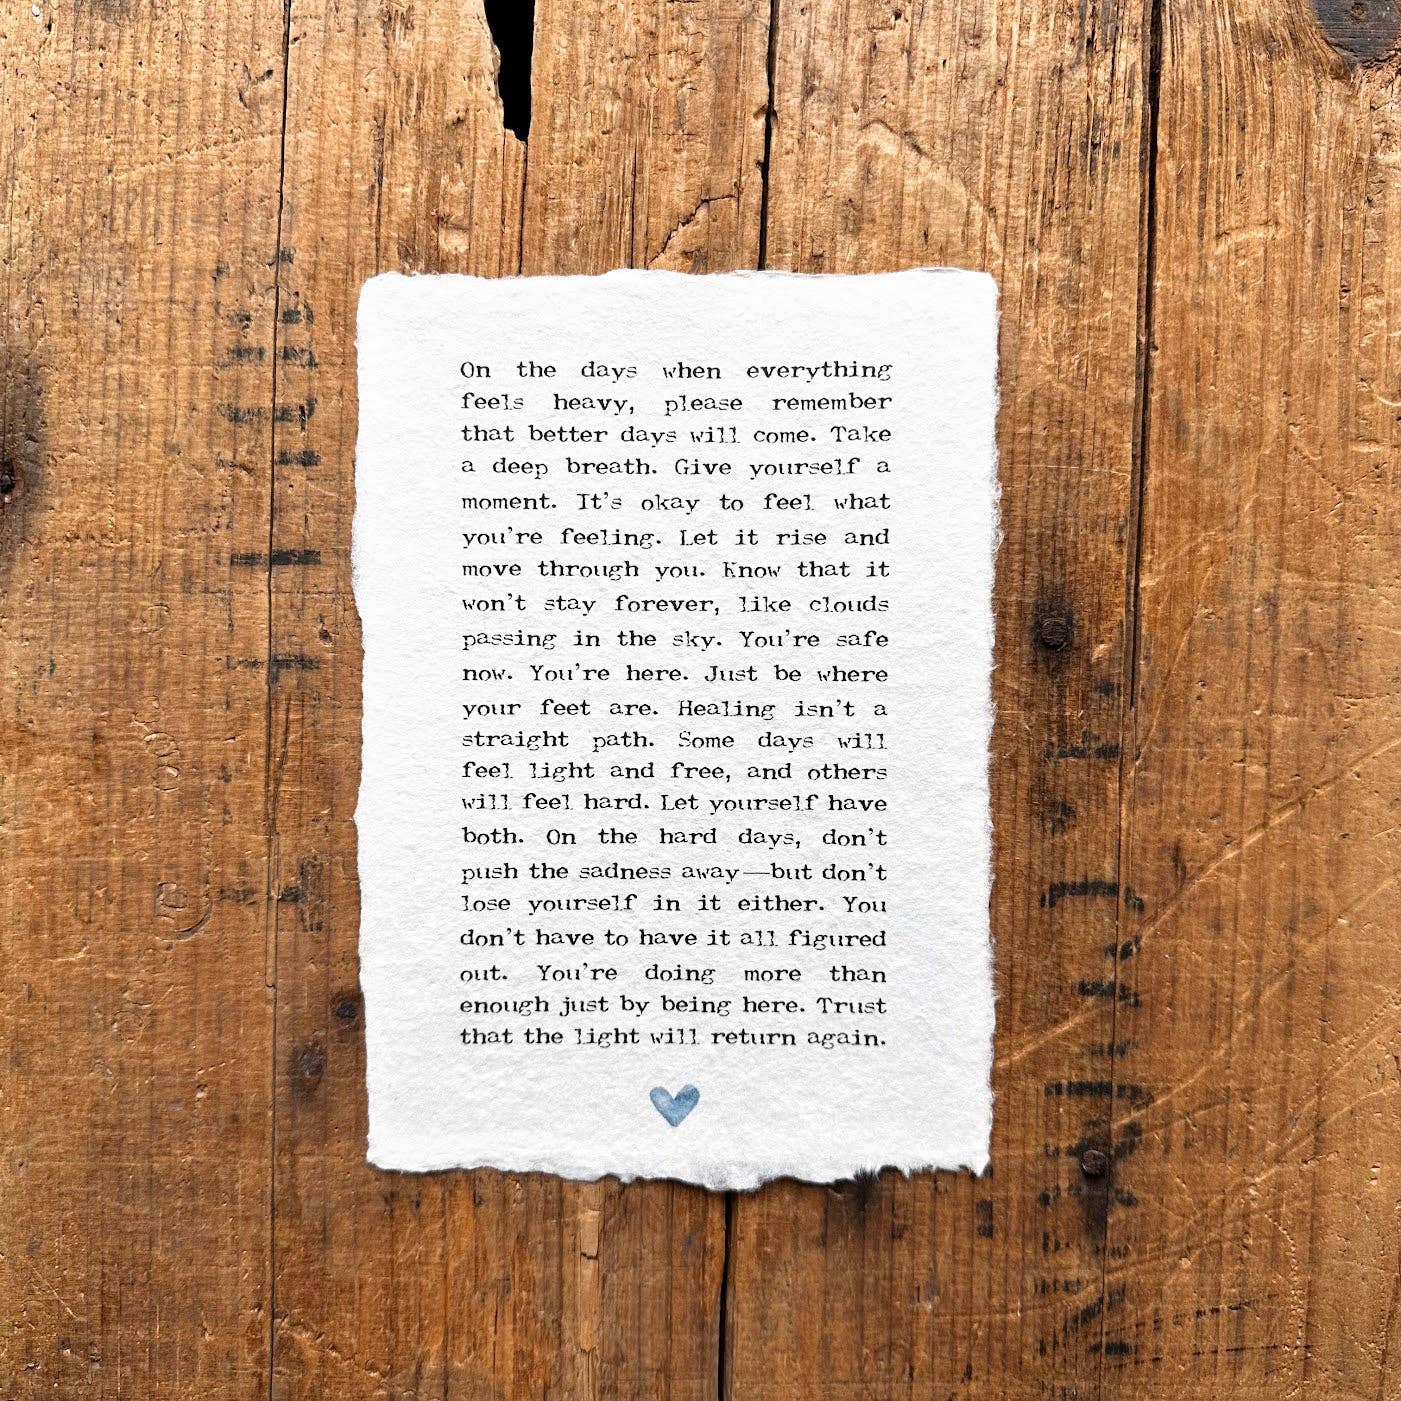 On the days when everything
feels heavy, please remember
that better days will come. Take
a deep breath. Give yourself a
moment. It's okay to feel what
you're feeling. Let it rise and
move through you. Know that it
won't stay forever, like clouds
passing in the sky. You're safe
now. You're here. Just be where
your feet are. Healing isn't a
straight path. Some days will
feel light and free, and others
will feel hard. Let yourself have
both. On the hard days, don't
push the sadness away—but don't
lose yourself in it either. You
don't have to have it all figured
out. You're doing more than
enough just by being here. Trust
that the light will return again.